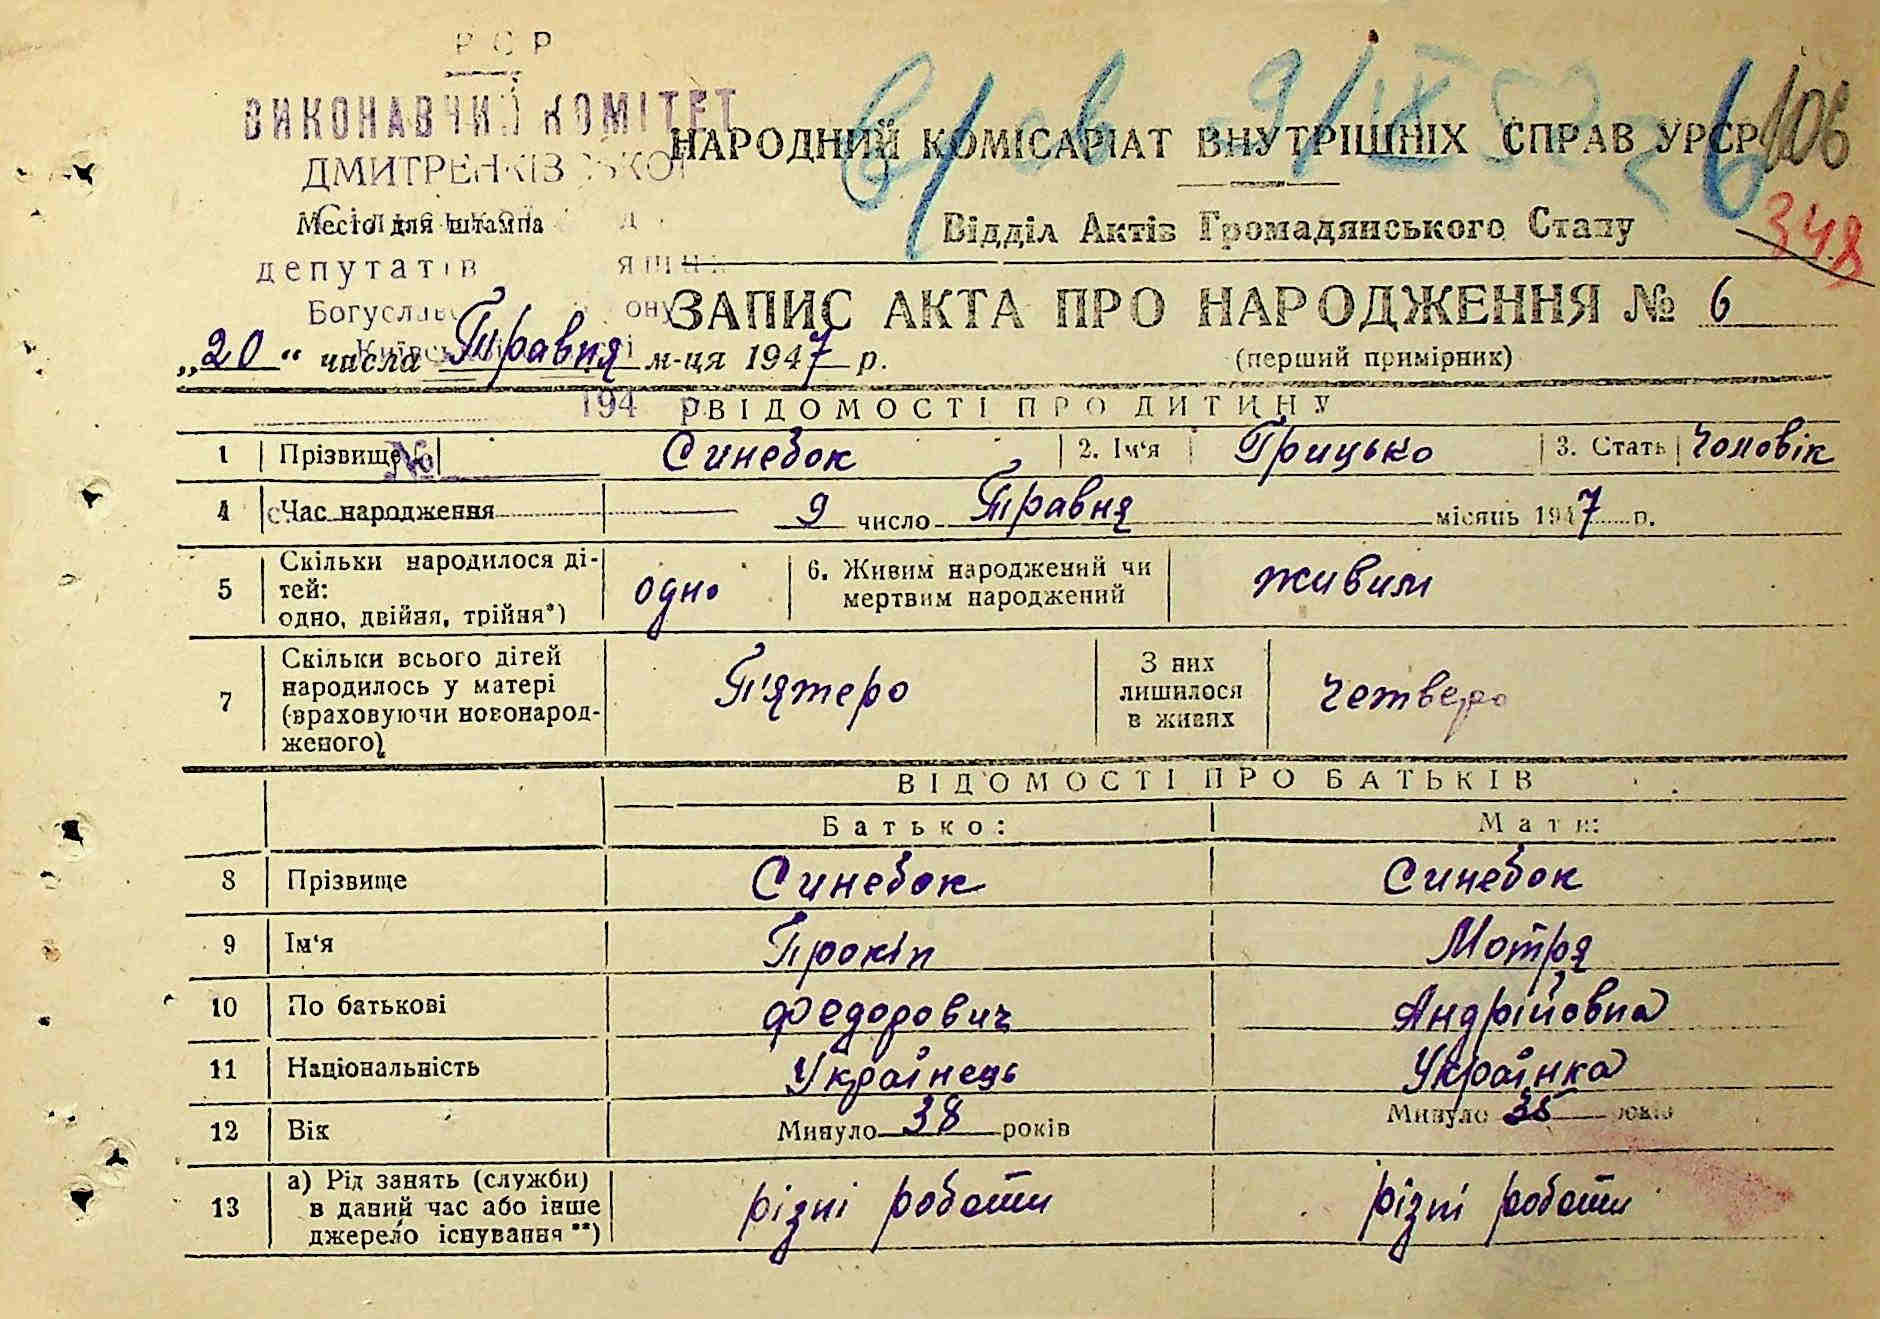 РСР
ВИКОНАВЧИЙ КОМІТЕТ
ДМИТРЕНКІВСЬКОЇ
Место для штампа
депутатів
Богуслав
194 р
№
НАРОДНИЙ КОМІСАРІАТ ВНУТРІШНІХ СПРАВ УРСР
106
348
Відділ Актів Громадянського Стану
ЗАПИС АКТА ПРО НАРОДЖЕННЯ № 6
„20“ числа Травня м-ця 1947 р.
(перший примірник)
ВІДОМОСТІ ПРО ДИТИНУ
1 Прізвище Синебок 2. Ім‘я Грицько 3. Стать Чоловік
4 Час народження 9 число Травня місяць 1947 р.
5 Скільки народилося ді-
тей:
одно, двійня, трійня*)
одно
6. Живим народжений чи
мертвим народжений
живим
7 Скільки всього дітей
народилось у матері
(враховуючи новонарод-
женого)
П'ятеро
З них
лишилося
в живих
четверо
ВІДОМОСТІ ПРО БАТЬКІВ
Батько: Мати:
8 Прізвище Синебок Синебок
9 Ім‘я Прокіп Мотря
10 По батькові Федорович Андрійовна
11 Національність Українець Українка
12 Вік Минуло 38 років Минуло 38 років
13 а) Рід занять (служби)
в даний час або інше
джерело існування**)
різні роботи різні роботи